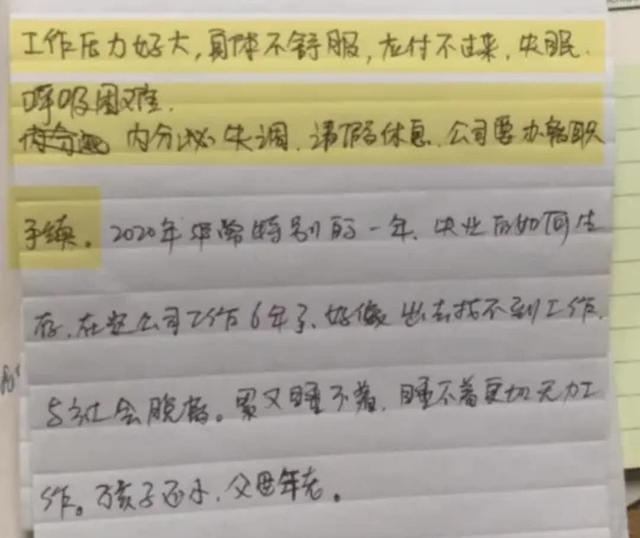 工作压力好大，身体不舒服，应付不过来，失眠.
呼吸困难.
内分泌失调. 请假休息. 公司要办离职
手续。2020年非常特别的一年. 失业后如何生
存. 在这公司工作6年了、好像出去找不到工作.
与社会脱轨。累又睡不着, 睡不着更加无力工
作。孩子还小, 父母年老。